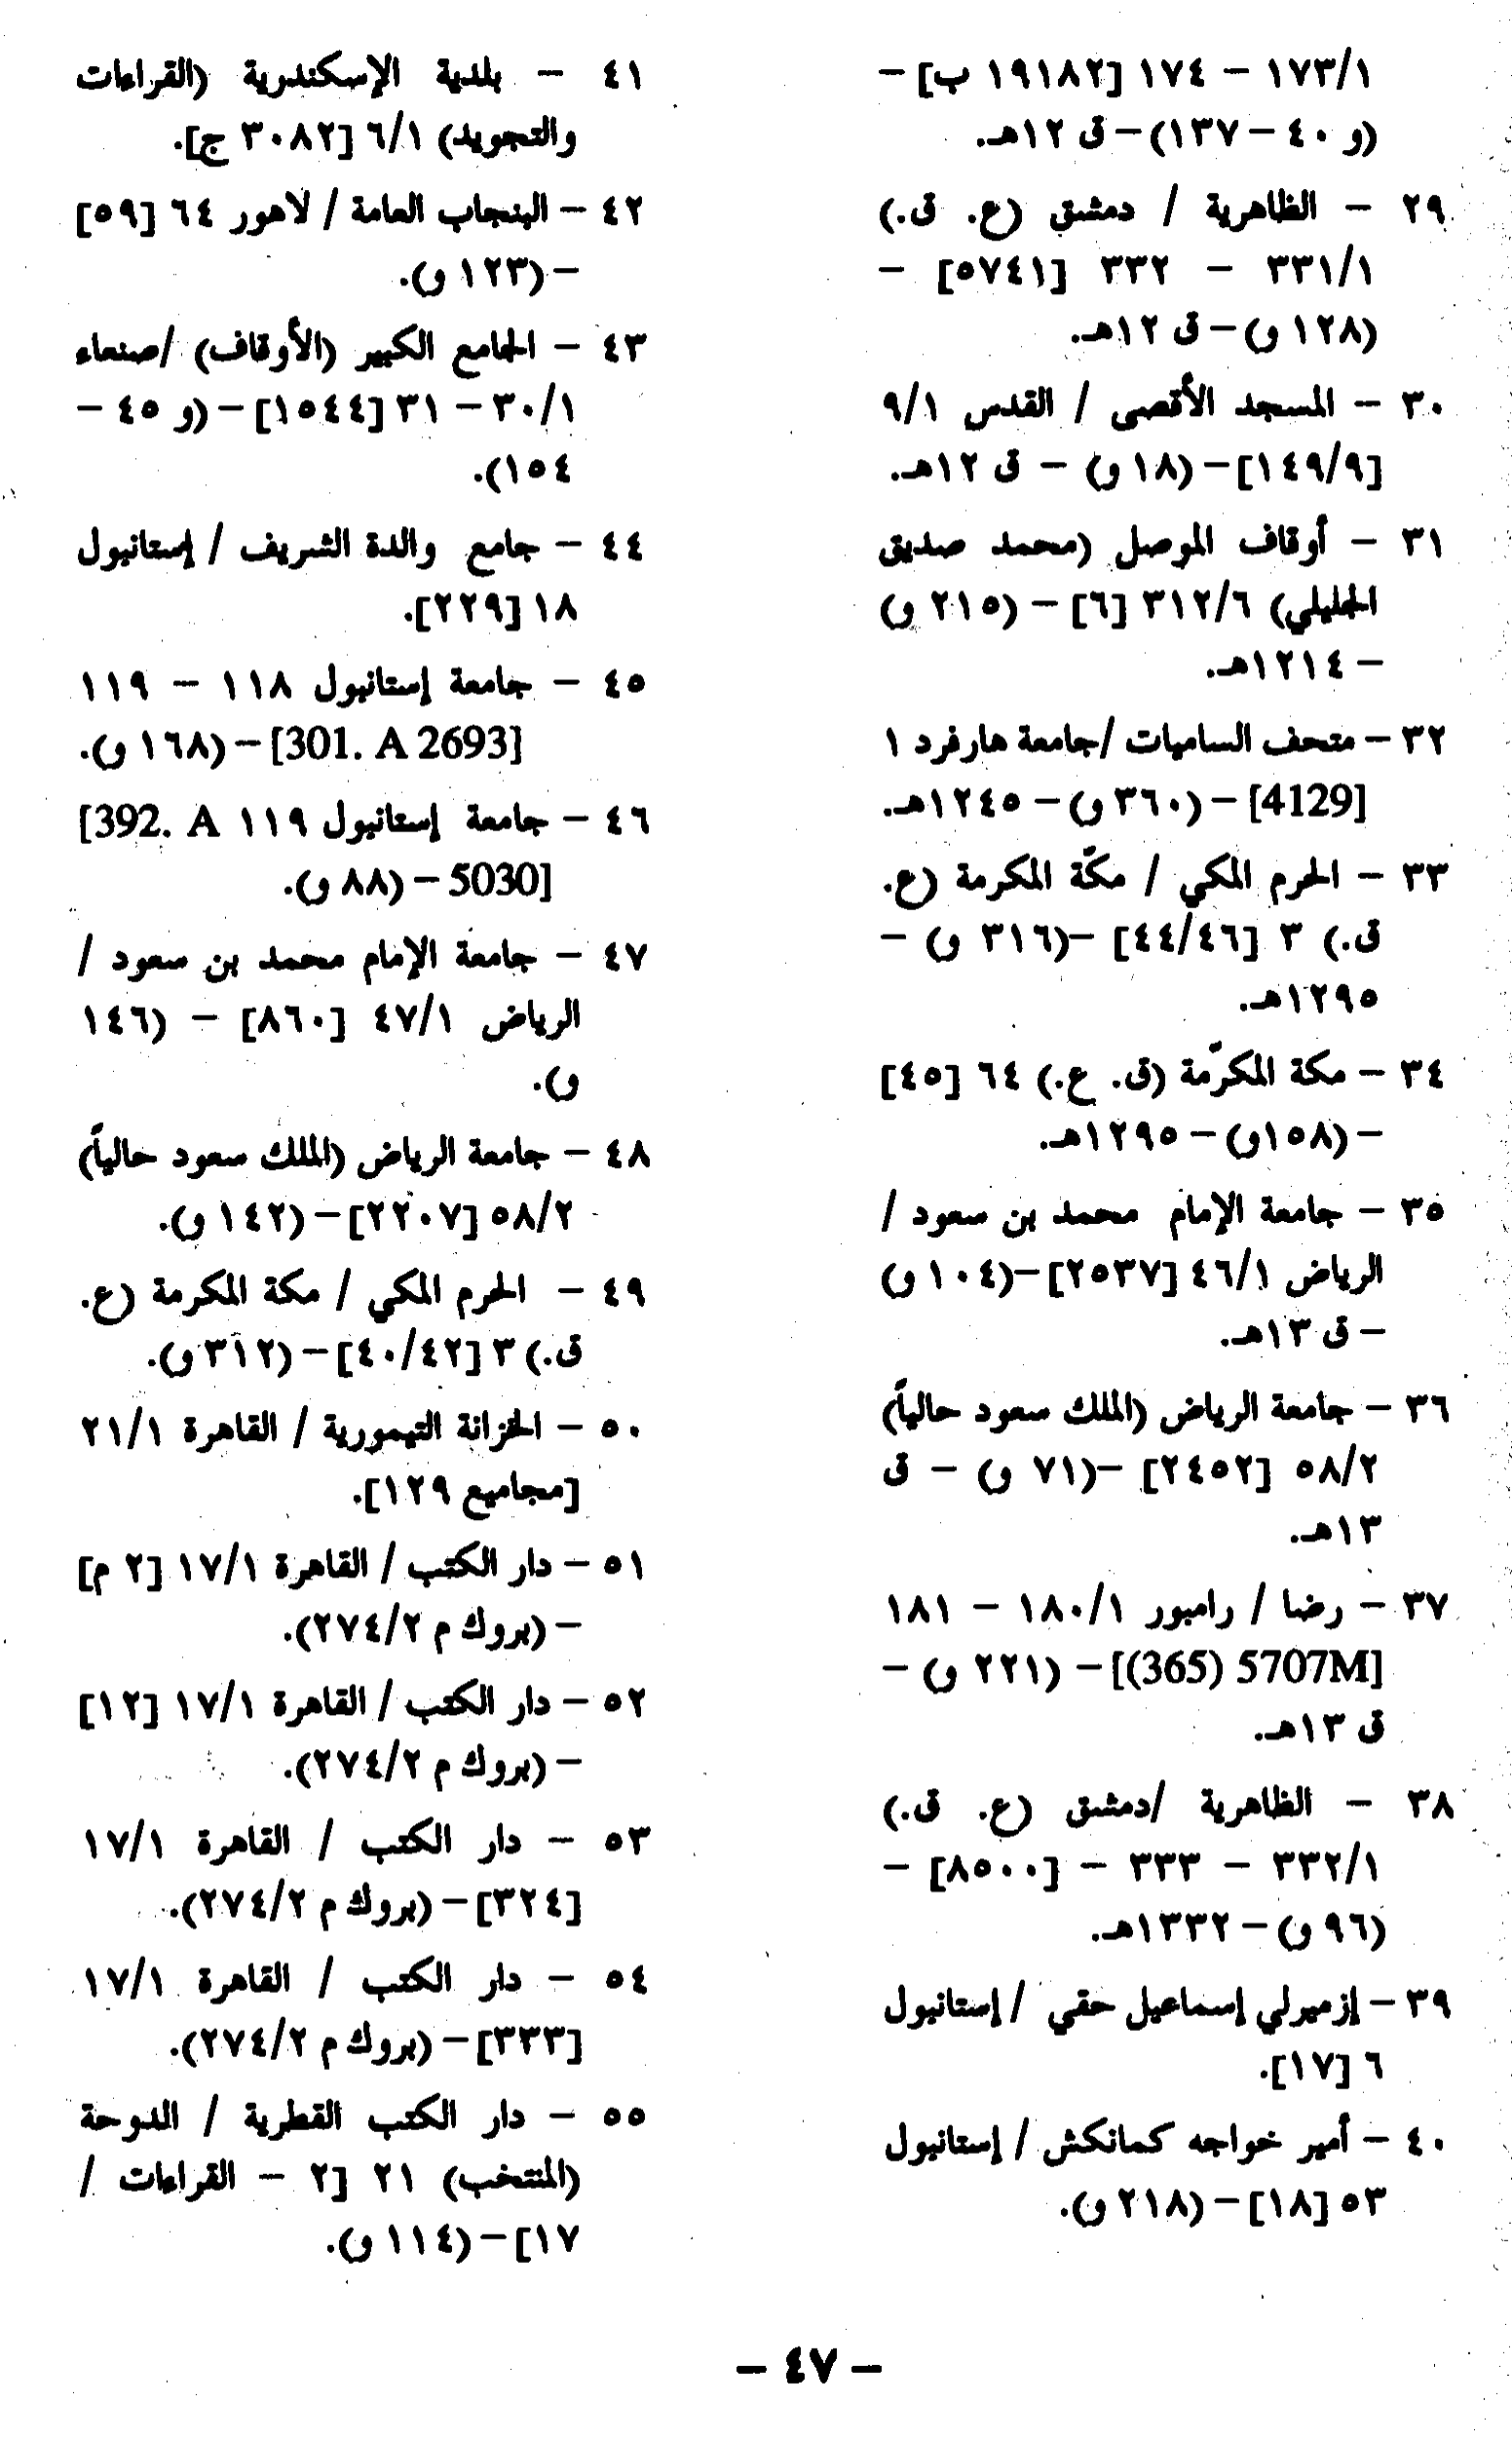 ١٧٣/١ – ١٧٤ [١٩١٨٢ ب] –
(و ٤٠ – ١٣٧) – ق ١٢هـ.
٢٩ – الظاهرية / دمشق (ع. ق.)
٣٣١/١ – ٣٣٢ [٥٧٤١] –
(١٢٨ و) – ق ١٢هـ.
٣٠ – المسجد الأقصى / القدس ٩/١
[١٤٩/٩] – (١٨ و) – ق ١٢هـ.
٣١ – أوقاف الموصل (محمد صديق
الجليلي) ٣١٢/٦ [٦] – (٢١٥ و)
– ١٢١٤هـ.
٣٢ – متحف الساميات /جامعة هارفرد ١
[4129] – (٣٦٠ و) – ١٢٤٥هـ.
٣٣ – الحرم المكي / مكّة المكرمة (ع.
ق.) ٣ [٤٤/٤٦] –(٣١٦ و) –
١٢٩٥هـ.
٣٤ – مكة المكرّمة (ق. ع.) ٦٤ [٤٥]
– (١٥٨و) – ١٢٩٥هـ.
٣٥ – جامعة الإمام محمد بن سعود /
الرياض ٤٦/١ [٢٥٣٧] –(١٠٤ و)
– ق ١٣هـ.
٣٦ – جامعة الرياض (الملك سعود حالياً)
٥٨/٢ [٢٤٥٢] –(٧١ و) – ق
١٣هـ.
٣٧ – رضا / رامبور ١٨٠/١ – ١٨١
[(365) 5707M] – (٢٢١ و) –
ق ١٣هـ.
٣٨ – الظاهرية /دمشق (ع. ق.)
٣٣٢/١ – ٣٣٣ – [٨٥٠٠] –
(٩٦ و) – ١٣٣٢هـ.
٣٩ – إزميرلي إسماعيل حقي / إستانبول
٦ [١٧].
٤٠ – أمير خواجه كمانكش / إستانبول
٥٣ [١٨] – (٢١٨ و).
٤١ – بلدية الإسكندرية (القراءات
والتجويد) ٦/١ [٣٠٨٢ ج].
٤٢ – البنجاب العامة / لاهور ٦٤ [٥٩]
– (١٢٣ و).
٤٣ – الجامع الكبير (الأوقاف) /صنعاء
٣٠/١ – ٣١ [١٥٤٤] – (و ٤٥ –
١٥٤).
٤٤ – جامع والدة الشريف / إستانبول
١٨ [٢٢٩].
٤٥ – جامعة إستانبول ١١٨ – ١١٩
[301. A 2693] – (١٦٨ و).
٤٦ – جامعة إستانبول ١١٩ [392. A
5030] – (٨٨ و).
٤٧ – جامعة الإمام محمد بن سعود /
الرياض ٤٧/١ [٨٦٠] – (١٤٦
و).
٤٨ – جامعة الرياض (الملك سعود حالياً)
٥٨/٢ [٢٢٠٧] – (١٤٢ و).
٤٩ – الحرم المكي / مكة المكرمة (ع.
ق.) ٣ [٤٠/٤٢] – (٣١٢ و).
٥٠ – الخزانة التيمورية / القاهرة ٢١/١
[مجاميع ١٢٩].
٥١ – دار الكتب / القاهرة ١٧/١ [٢ م]
– (بروك م ٢٧٤/٢).
٥٢ – دار الكتب / القاهرة ١٧/١ [١٢]
– (بروك م ٢٧٤/٢).
٥٣ – دار الكتب / القاهرة ١٧/١
[٣٢٤] – (بروك م ٢٧٤/٢).
٥٤ – دار الكتب / القاهرة ١٧/١
[٣٣٣] – (بروك م ٢٧٤/٢).
٥٥ – دار الكتب القطرية / الدوحة
(المنتخب) ٢١ [٢ – القراءات /
١٧] – (١١٤ و).
– ٤٧ –